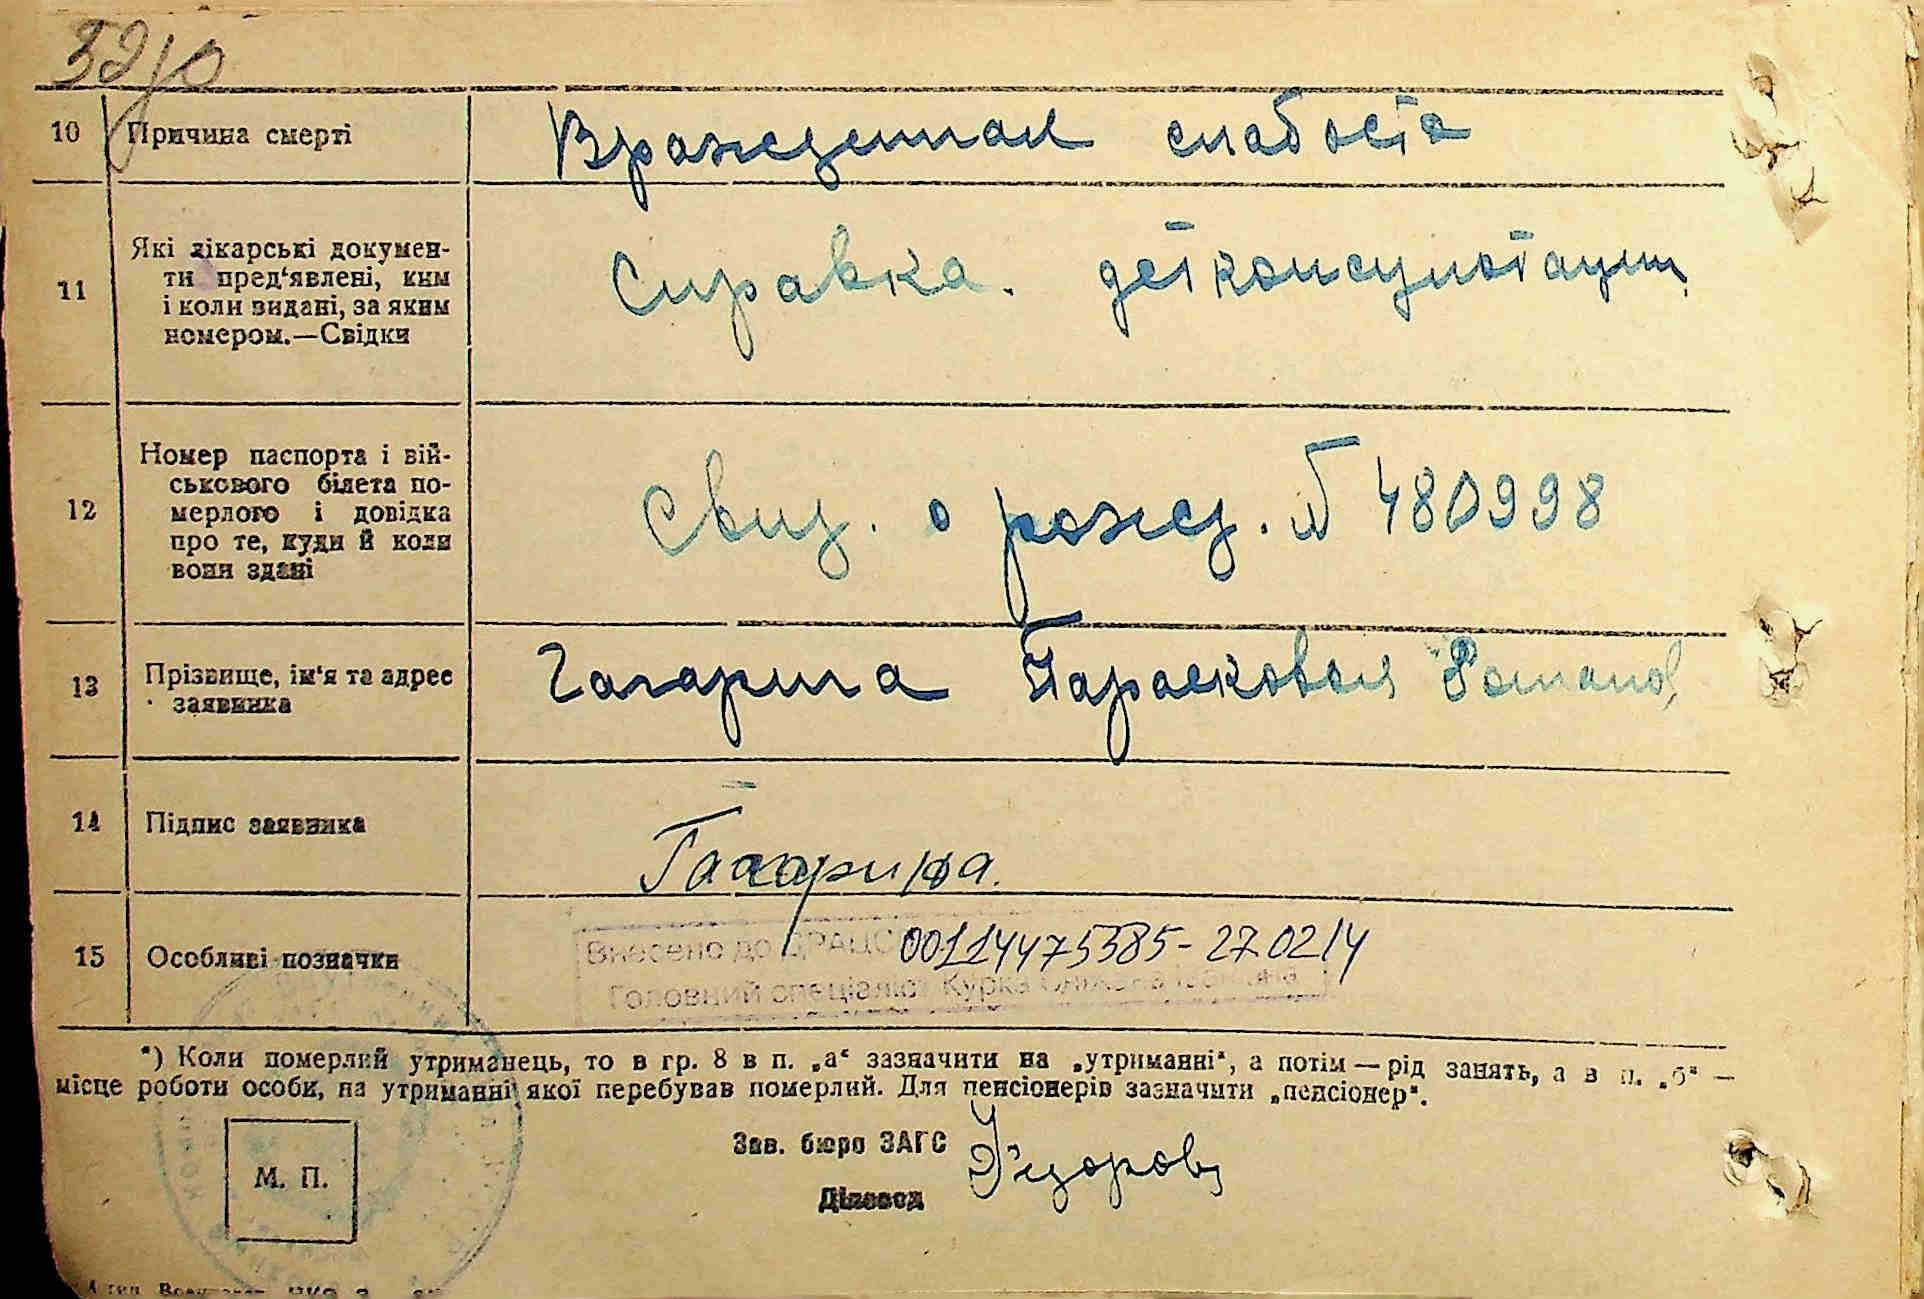 10 Причина смерті Врожденная слабость
11 Які лікарські докумен-
ти пред‘явлені, ким
і коли видані, за яким
номером.—Свідки
Справка. детконсультации
12 Номер паспорта і вій-
ськового білета по-
мерлого і довідка
про те, куди й коли
вони здані
Свид. о рожд. № 480998
13 Прізвище, ім‘я та адрес
заявника
Гагарина Парасковья Роман.
14 Підпис заявника
Гагарина.
15 Особливі позначки
Внесено до ДРАЦС 00114475385- 27.02.14
Головний спеціаліст Курка
*) Коли померлий утриманець, то в гр. 8 в п. „а“ зазначити на „утриманні“, а потім — рід занять, а в п. „б“ —
місце роботи особи, на утриманні якої перебував померлий. Для пенсіонерів зазначити „пенсіонер“.
Зав. бюро ЗАГС
М. П.
Діловод